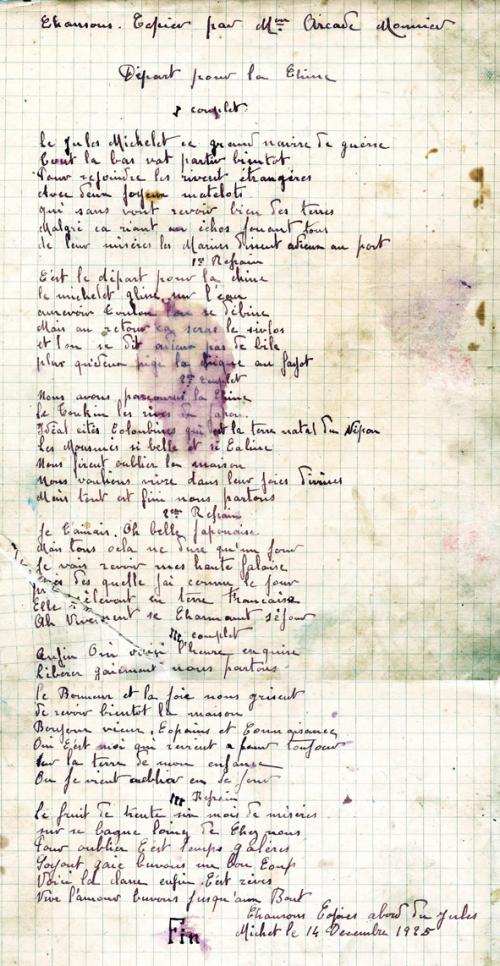 Chansons. Copier par Mme Arcade Monnier
Départ pour la Chine
1 couplet
Le Jules Michelet ce grand navire de guerre
Tout la bas vat partir bientot
Pour rejoindre les rivent étrangères
Avec deux joyeux matelots
qui sans vont revoir bien des terres
Malgré ca riant au échos jouant tous
de leur misères les Marins disent adieux au port
1er Refrain
C'est le départ pour la chine
le michelet glisse sur l'eau
aurevoir Toulon l'on se débine
Mais au retour
et l'on se dit pas de bile
plus qu'deux pige la chique au fayot
2me couplet
Nous avons parcourus la Chine
Le Tonkin les rives du Japon
Idéal cités Colombines qui est la terre natal du Népon
Les Mousmés si belle et si Caline
Nous firent oublier la maison
Nous voulions vivre dans leur joies divines
Mais tout est fini nous partons
2eme Refrain
Je t'aimais. Oh belle Japonaise
Mais tous cela ne dure qu'un jour
Je vais revoir mes haute falaise
près des quelle j'ai connu le jour
Elle en terre Francaise
Ah Vivement se Charmant séjour
III couplet
Anfin Oui voici l'heure exquise
Libérer gaiement nous partons
Le Bonneur et la joie nous grisent
de revoir bientot la maison
Bonjour vieux Copains et Connaisance
Oui C'est moi qui revient pour toujour
Sur la terre de mon enfance
Ou je vient en se jour
III Refrain
Le fruit de trente six mois de misères
sur se bagne loing de Chez nous
Pour oublier C'est temps galères
Soyont gaie buvons un bon Coup
Voici la enfin C'est rêves
Vive l'amour buvons jusqu'aux Bout
Chansons Copies abord du Jules
Michet le 14 Décembre 1925
Fin